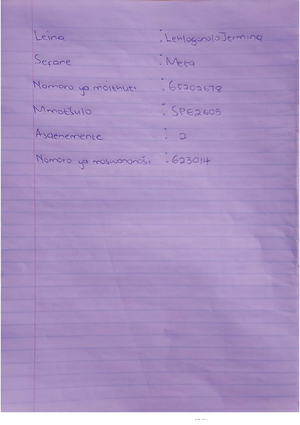 Leina : Lehlogonolo Jermina
Serane : Meta
Nomoro ya moithuti : 65202678
Mmotšulo : SPE2605
Asaenemente : 2
Nomoro ya moswananoši : 623014